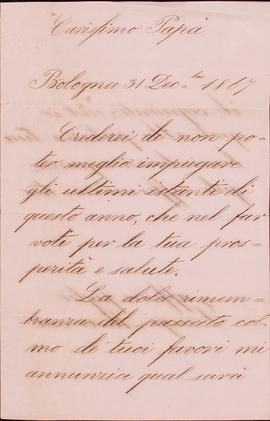 Carissimo Papà
Bologna 31 Dec.bre 1867
Crederei di non po-
ter meglio impiegare
gli ultimi istanti di
questo anno, che nel far
voti per la tua pros-
perità e salute.
La dolce rimem-
branza del passato col-
mo di tuoi favori mi
annunzia qual sarà